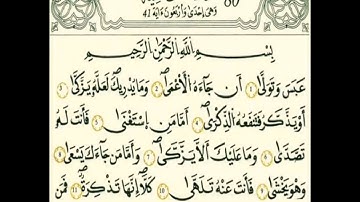 وَهِيَ إِحْدَىٰ وَأَرْبَعُونَ ءَايَةً 41
بِسْمِ اللَّهِ الرَّحْمَٰنِ الرَّحِيمِ
عَبَسَ وَتَوَلَّىٰٓ 1 أَن جَآءَهُ الْأَعْمَىٰ 2 وَمَا يُدْرِيكَ لَعَلَّهُ يَزَّكَّىٰٓ 3
أَوْ يَذَّكَّرُ فَتَنفَعُهُ الذِّكْرَىٰٓ 4 أَمَّا مَنِ اسْتَغْنَىٰ 5 فَأَنتَ لَهُ
تَصَّدَّىٰ 6 وَمَا عَلَيْكَ أَلَّا يَزَّكَّىٰ 7 وَأَمَّا مَن جَآءَكَ يَسْعَىٰ 8
وَهُوَ يَخْشَىٰ 9 فَأَنتَ عَنْهُ تَلَهَّىٰ 10 كَلَّآ إِنَّهَا تَذْكِرَةٌ 11 فَمَن